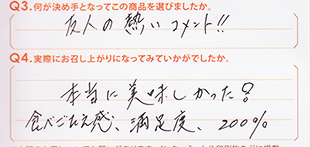 Q3.何が決め手となってこの商品を選びましたか。
友人の熱いコメント!!
Q4.実際にお召し上がりになってみていかがでしたか。
本当に美味しかった?
食べごたえ感、満足度、200%